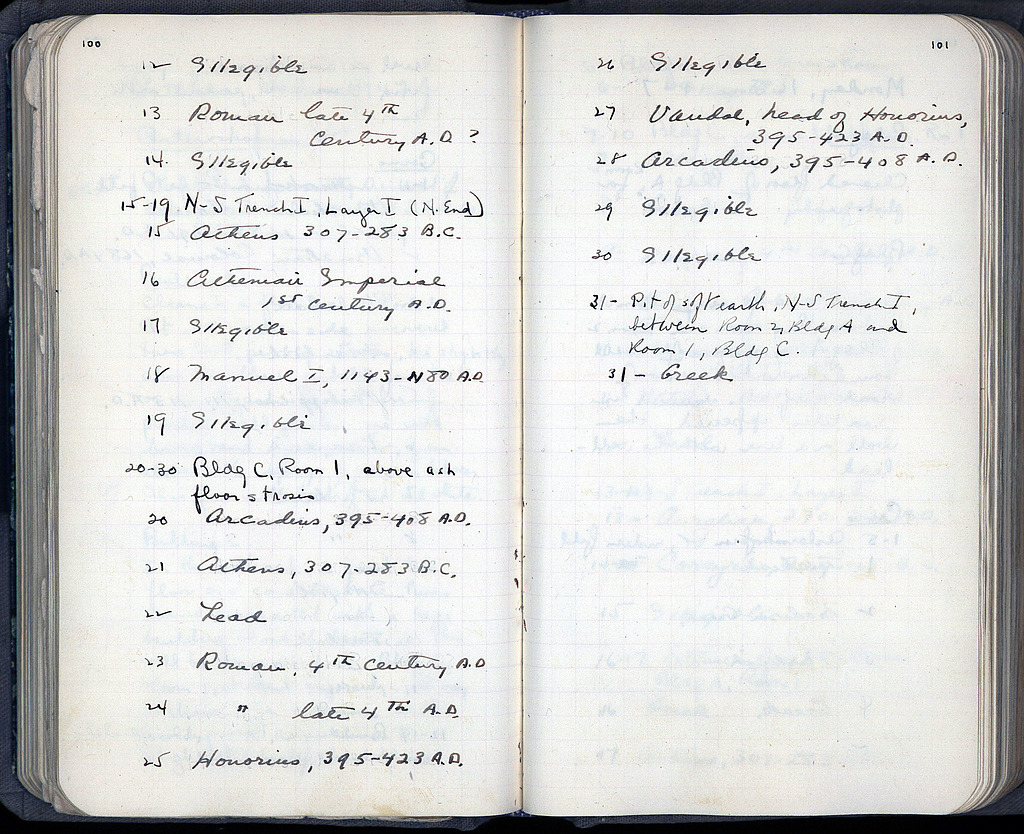 100
12 Illegible
13 Roman late 4th
Century A.D. ?
14. Illegible
15-19 N-S Trench I, Layer I (N. End)
15 Athens 307-283 B.C.
16 Athenian Imperial
1st Century A.D.
17 Illegible
18 Manuel I, 1143-1180 A.D.
19 Illegible
20-30 Bldg C, Room 1, above ash
floor strosis
20 Arcadius, 395-408 A.D.
21 Athens, 307-283 B.C.
22 Lead
23 Roman, 4th century A.D
24 " late 4th A.D.
25 Honorius, 395-423 A.D.
101
26 Illegible
27 Vandal, head of Honorius,
395-423 A.D.
28 Arcadius, 395-408 A.D.
29 Illegible
30 Illegible
31- Pit of soft earth, N-S Trench I,
between Room 2, Bldg A and
Room 1, Bldg C.
31 - Greek